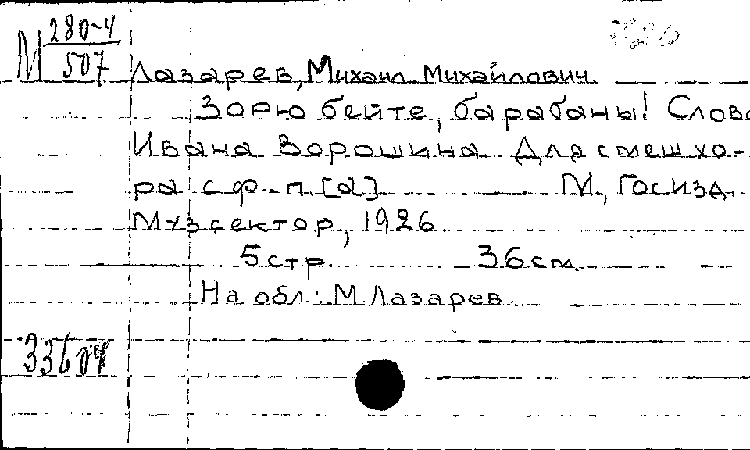 М 280-4/507
Лазарев, Михаил Михайлович
Зорю бейте, барабаны! Слова
Ивана Ворошина. Для смеш. хо-
ра с ф.-п. [a]. М., Госизд.
Музсектор, 1926
5 стр. 36 см.
На обл.: М. Лазарев